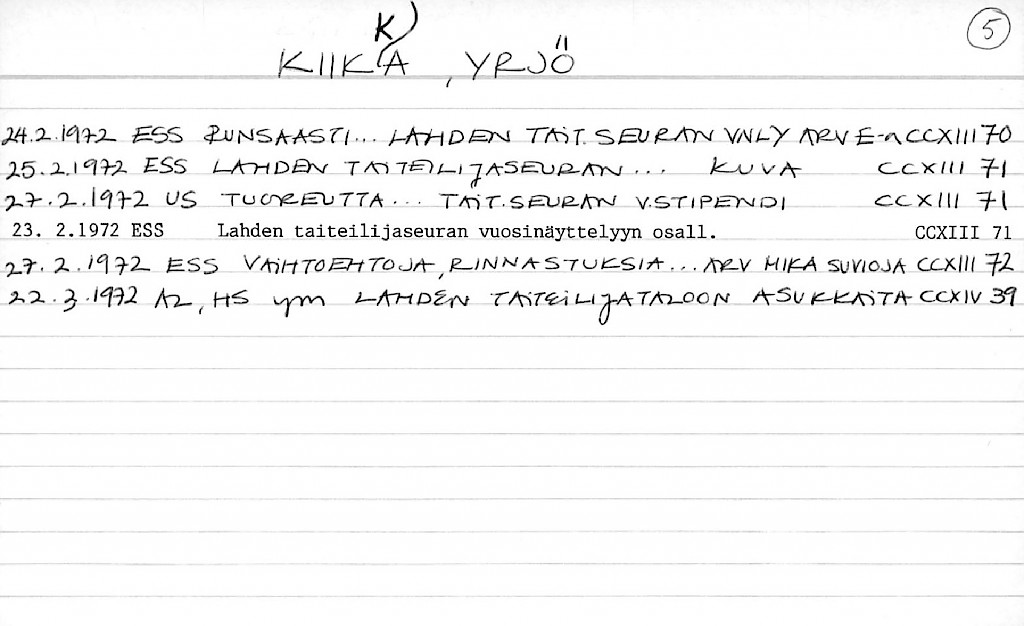 5
KIIKKA, YRJÖ
24.2.1972 ESS RUNSAASTI... LAHDEN TAIT. SEURAN VNLY ARV E-n CCXIII 70
25.2.1972 ESS LAHDEN TAITEILIJASEURAN... KUVA CCXIII 71
27.2.1972 US TUOREUTTA... TAIT.SEURAN V.STIPENDI CCXIII 71
23. 2.1972 ESS Lahden taiteilijaseuran vuosinäyttelyyn osall. CCXIII 71
27.2.1972 ESS VAIHTOEHTOJA, RINNASTUKSIA... ARV MIKA SUVIOJA CCXIII 72
22.3.1972 AL, HS ym LAHDEN TAITEILIJATALOON ASUKKAITA CCXIV 39